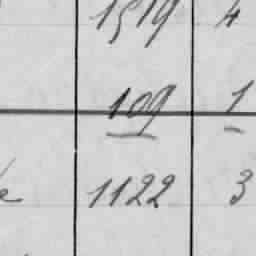 1519 4
109 1
1122 3